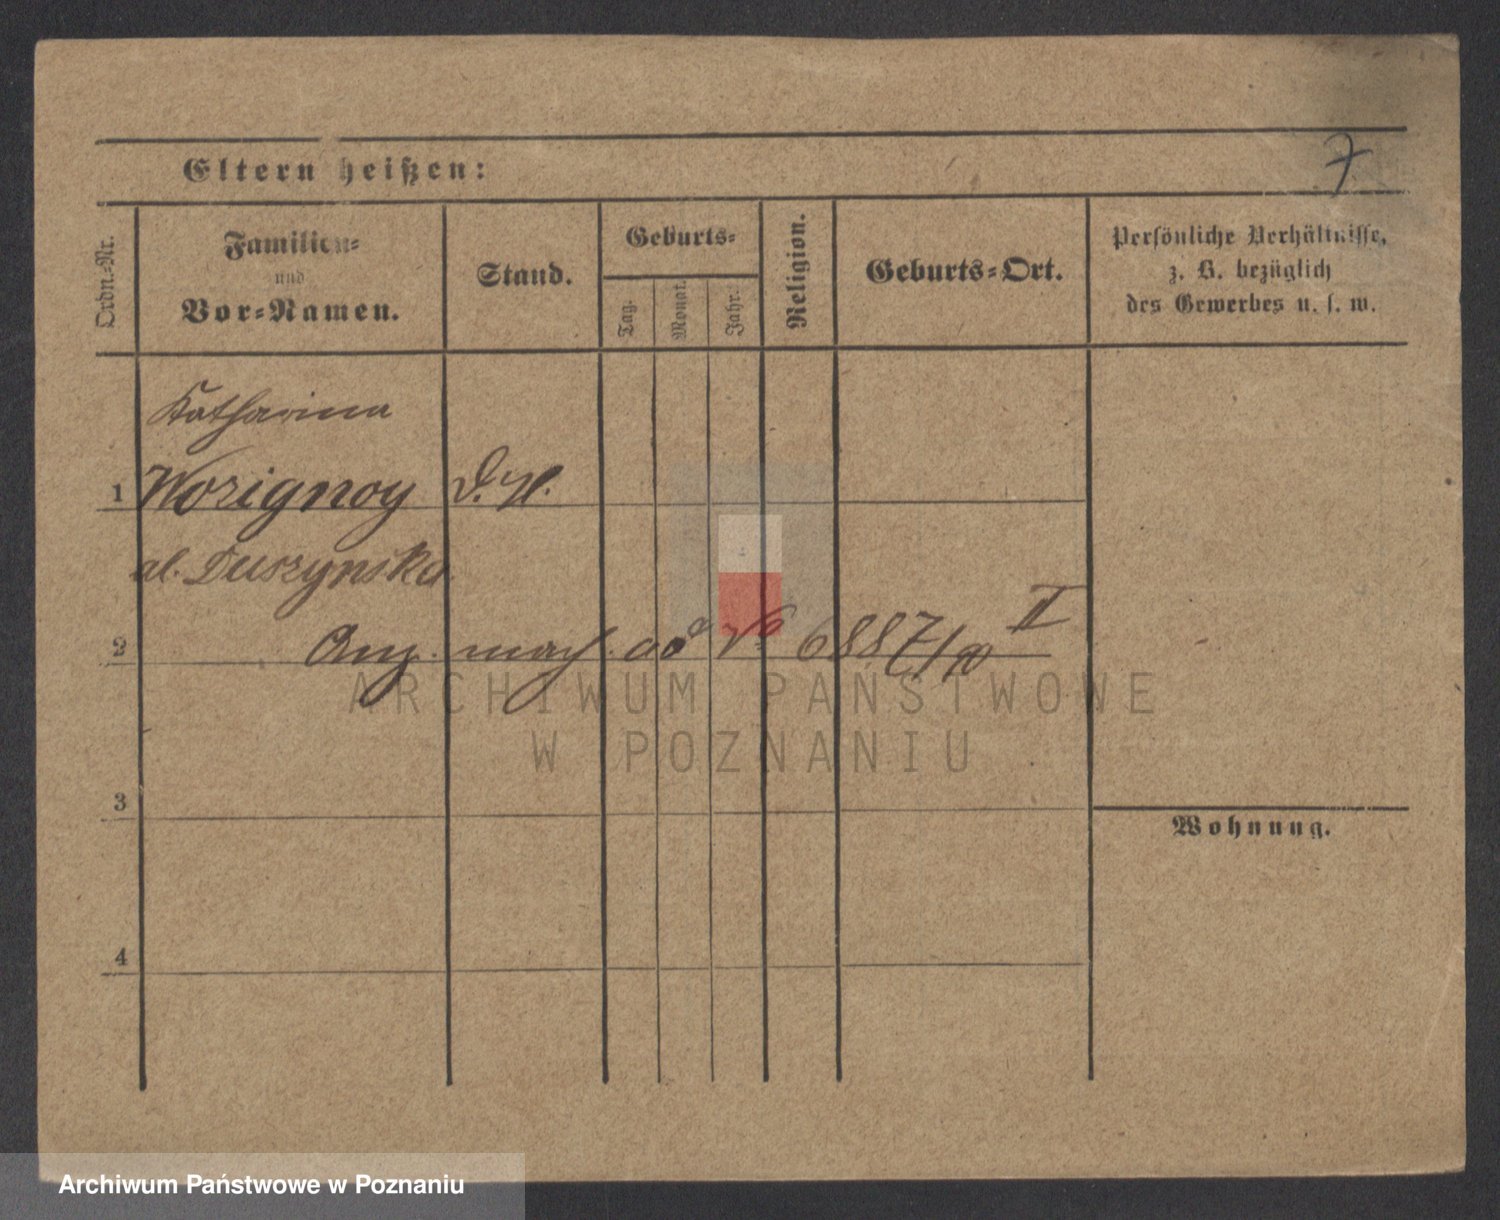 7
Eltern heißen:
Ordn.-Nr.
Familien-
und
Vor-Namen.
Stand.
Geburts-
Tag.
Monat.
Jahr.
Religion.
Geburts-Ort.
Persönliche Verhältnisse,
z. B. bezüglich
des Gewerbes u. s. w.
Katharina
1 Worignoy D.H.
al. Duszynska
2 Anz. mach. ad No 6887/90 II
ARCHIWUM PAŃSTWOWE
W POZNANIU
3
Wohnung.
4
Archiwum Państwowe w Poznaniu